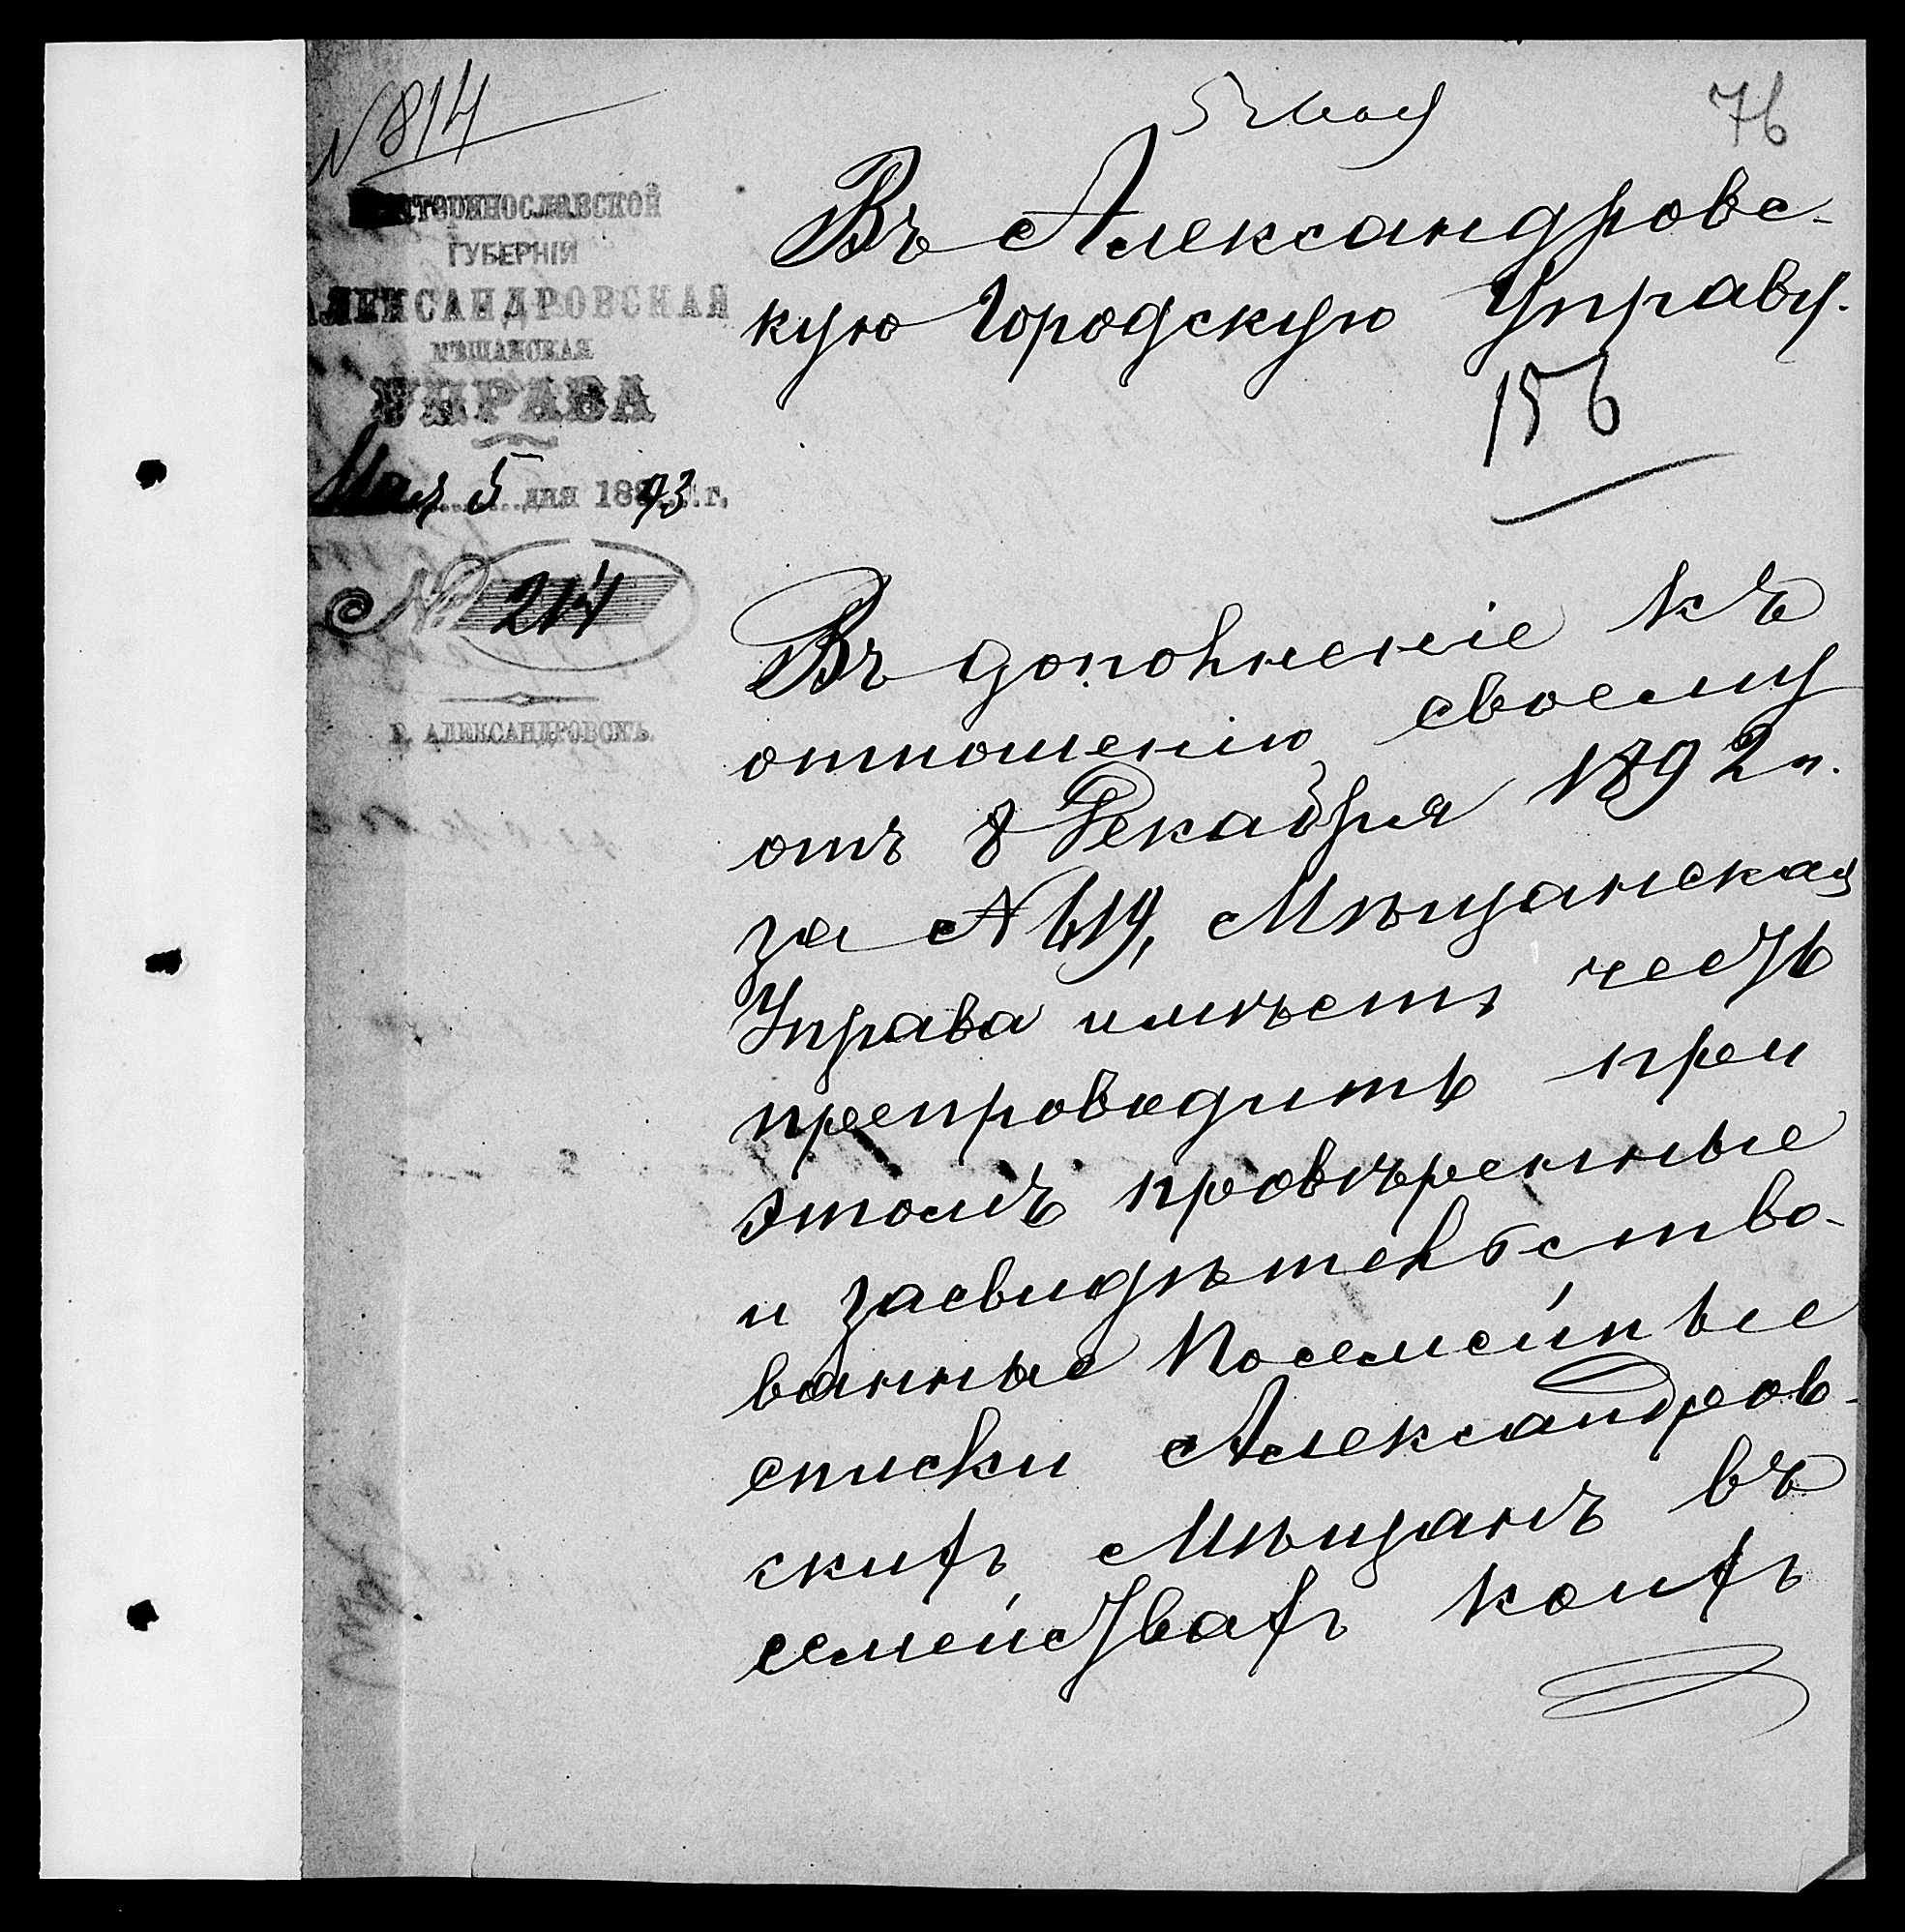 № 814
5 мая
76
Екатеринославской
ГУБЕРНІИ
АЛЕКСАНДРОВСКАЯ
МѢЩАНСКАЯ
УПРАВА
Мая 5 дня 1893 г.
№ 214
Г. АЛЕКСАНДРОВСКЪ.
Въ Александровс-
кую Городскую Управу.
156
Въ дополненіе къ
отношенію своему
отъ 8 Декабря 1892 г.
за № 419, Мѣщанская
Управа имѣетъ честь
препроводить при
этомъ провѣренные
и засвидѣтельство-
ванные посемейные
списки Александров-
скихъ мѣщанъ въ
семействахъ коихъ